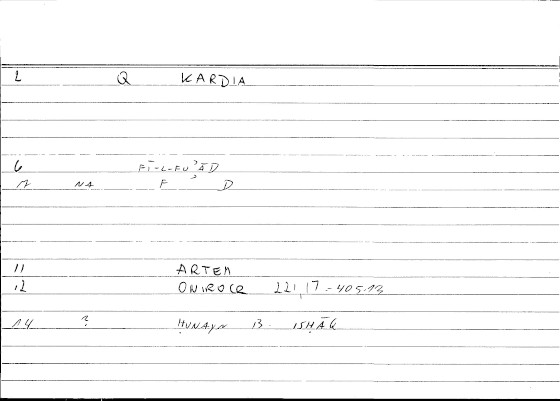 L Q KARDIA
6 FĪ-L-FUʾĀD
12 NA F ʾ D
11 ARTEM
12 ONIROCR 221,17 = 405.13
14 ? ḤUNAYN B. ISḤĀQ